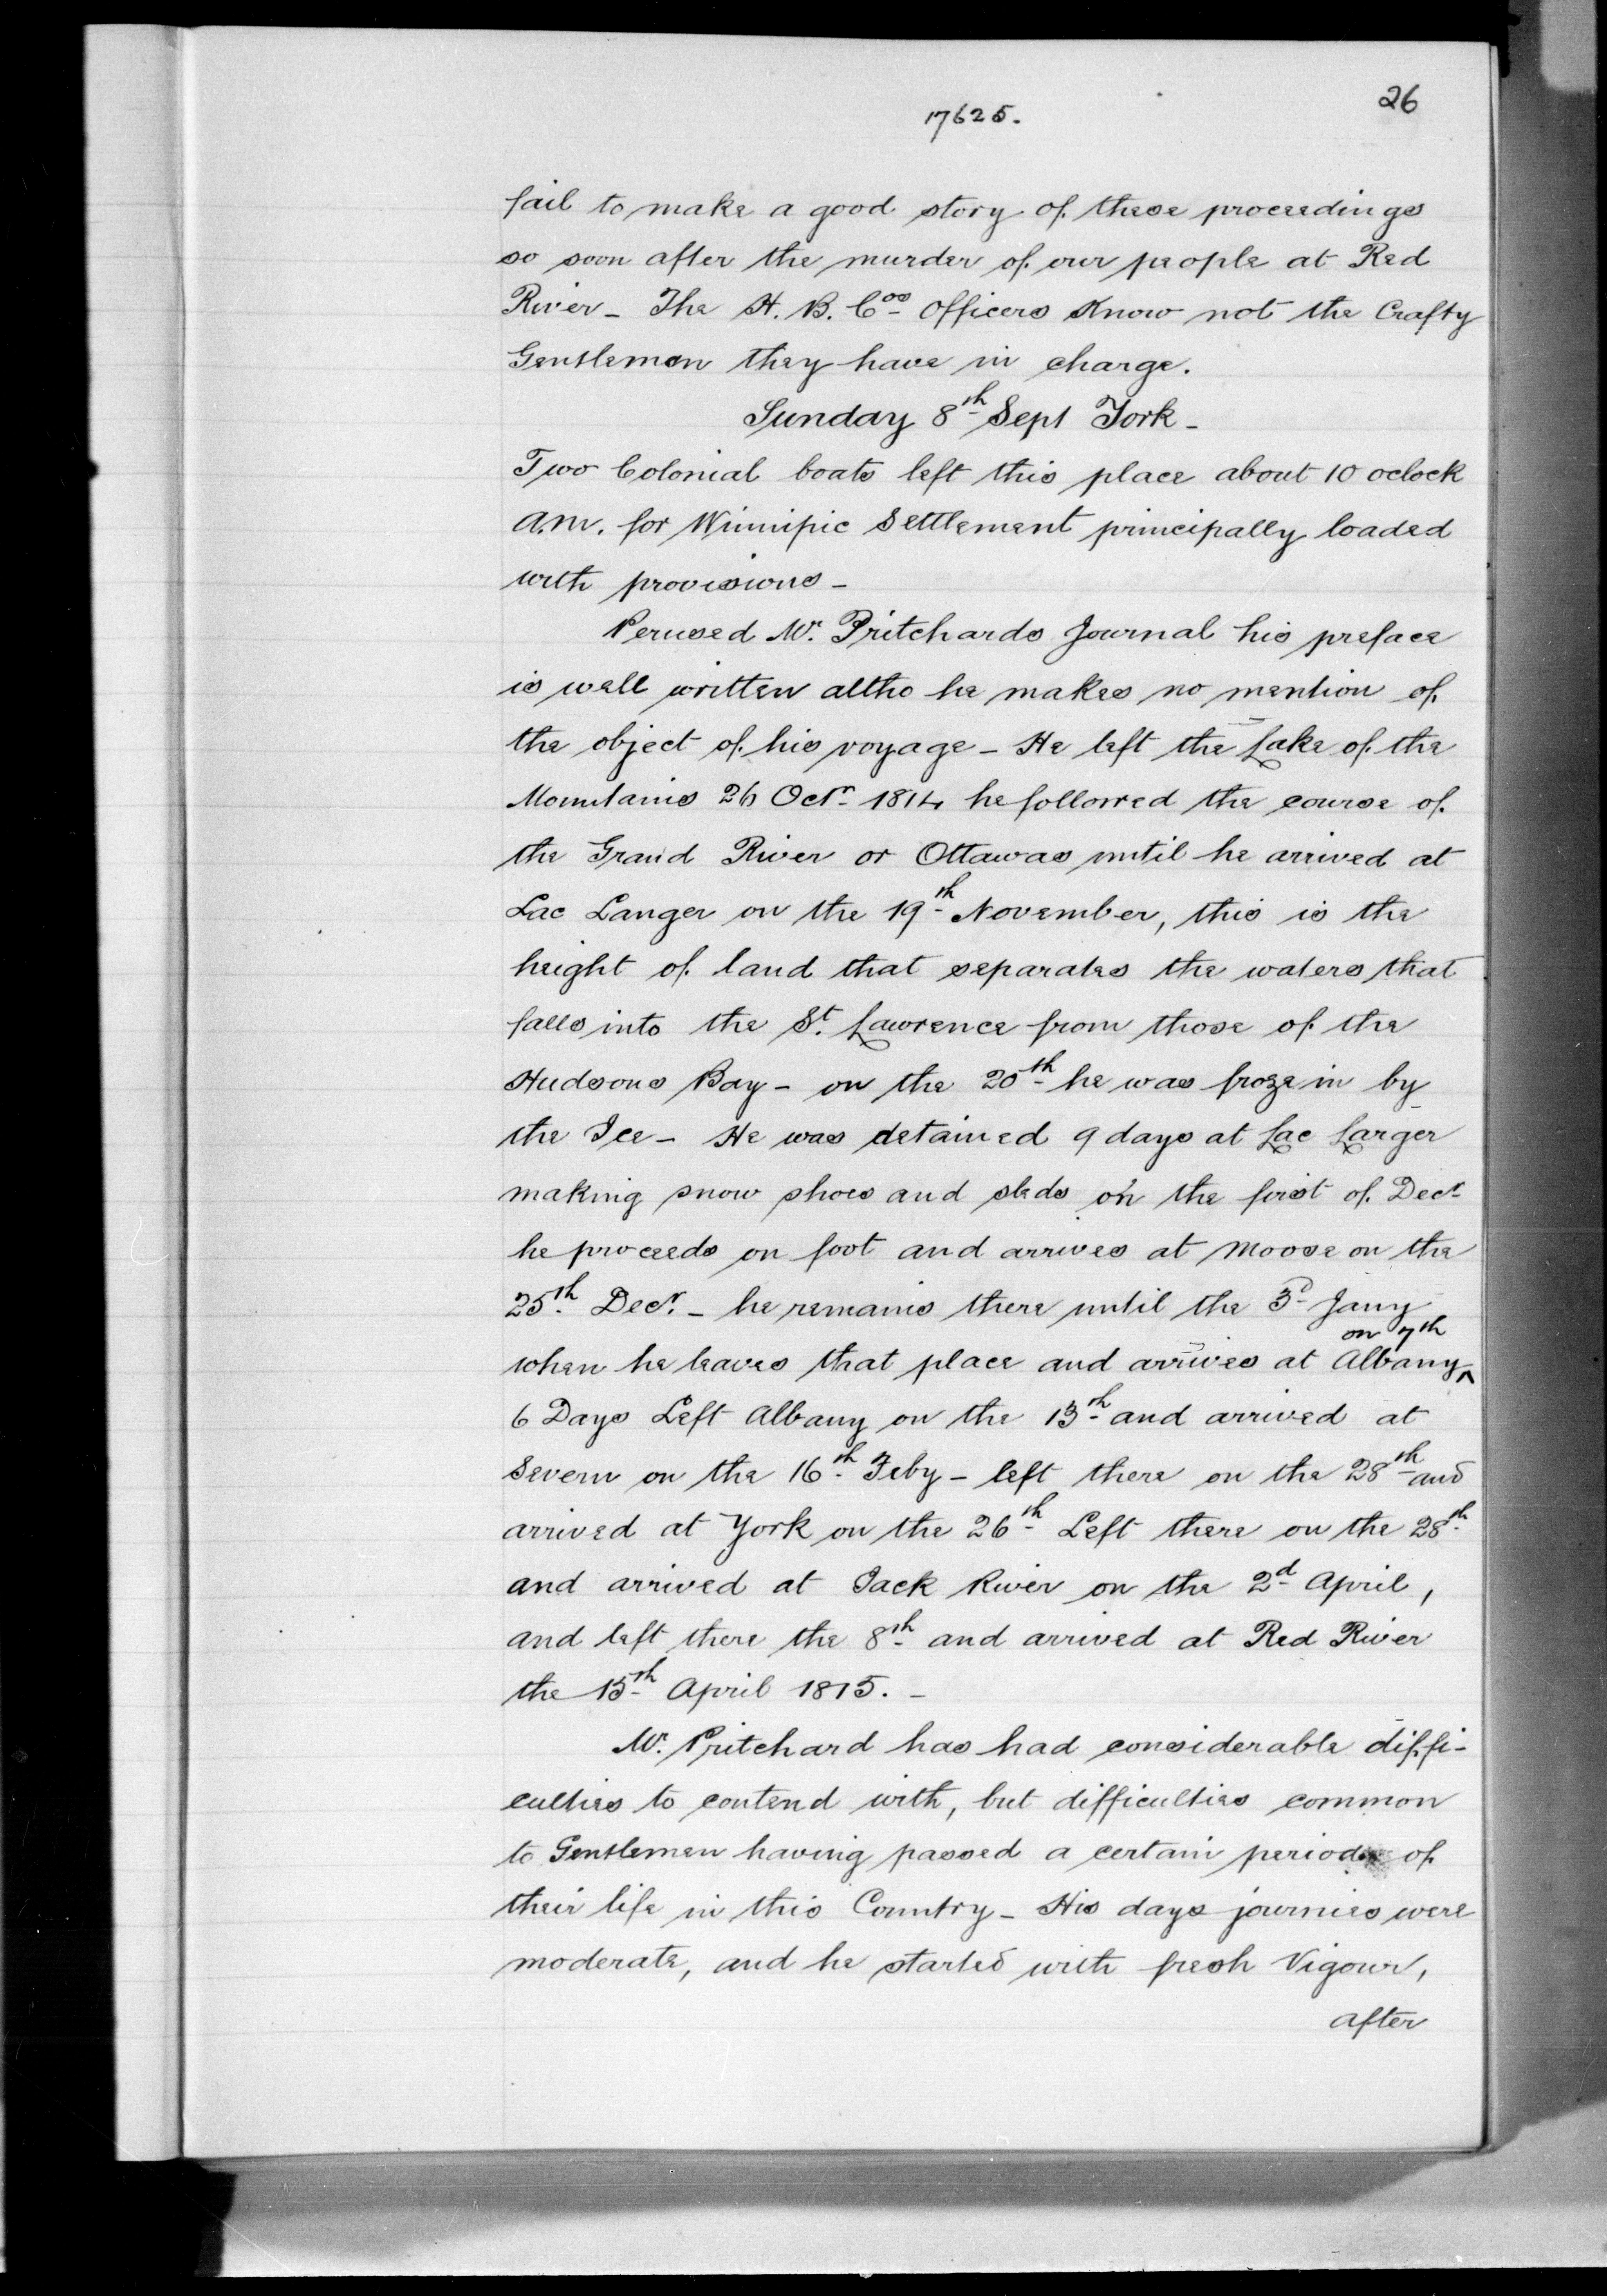 26
17625.
fail to make a good story of these proceedings
so soon after the murder of our people at Red
River - The H. B. Cos Officers Know not the Crafty
Gentlemen they have in charge.
Sunday 8th Sept York -
Two Colonial boats left this place about 10 oclock
a.m. for Winnipic Settlement principally loaded
with provisions -
Perused Mr. Pritchards Journal his preface
is well written altho he makes no mention of
the object of his voyage - He left the Lake of the
Mountains 26 Octr 1814 he followed the course of
the Grand River or Ottawas until he arrived at
Lac Langer on the 19th November, this is the
height of land that separates the waters that
falls into the St. Lawrence from those of the
Hudsons Bay - on the 20th he was froze in by
the Ice - He was detained 9 days at Lac Larger
making snow shoes and sleds on the first of Decr
he proceeds on foot and arrives at Moose on the
25th Decr. - he remains there until the 3d Jany
on 7th
when he leaves that place and arrives at Albany ^
6 Days Left Albany on the 13th and arrived at
Severn on the 16th Feby - left there on the 28th and
arrived at York on the 26th Left there on the 28th
and arrived at Jack River on the 2d April,
and left there the 8th and arrived at Red River
the 15th April 1815. -
Mr. Pritchard has had considerable diffi-
culties to contend with, but difficulties common
to Gentlemen having passed a certain period of
their life in this Country - His days journies were
moderate, and he started with fresh Vigour,
after